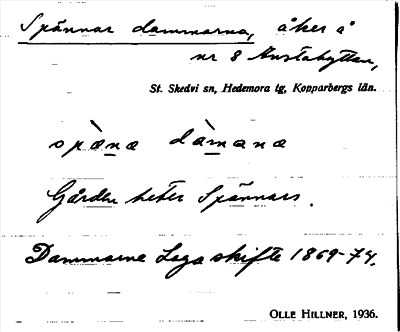 Spännar dammarna, åker å
nr 8 Knustahyttan,
St. Skedvi sn, Hedemora tg, Kopparbergs län.
spæ̀na dàmana
Gården heter Spännars.
Dammarne Laga skifte 1869-74.
OLLE HILLNER, 1936.